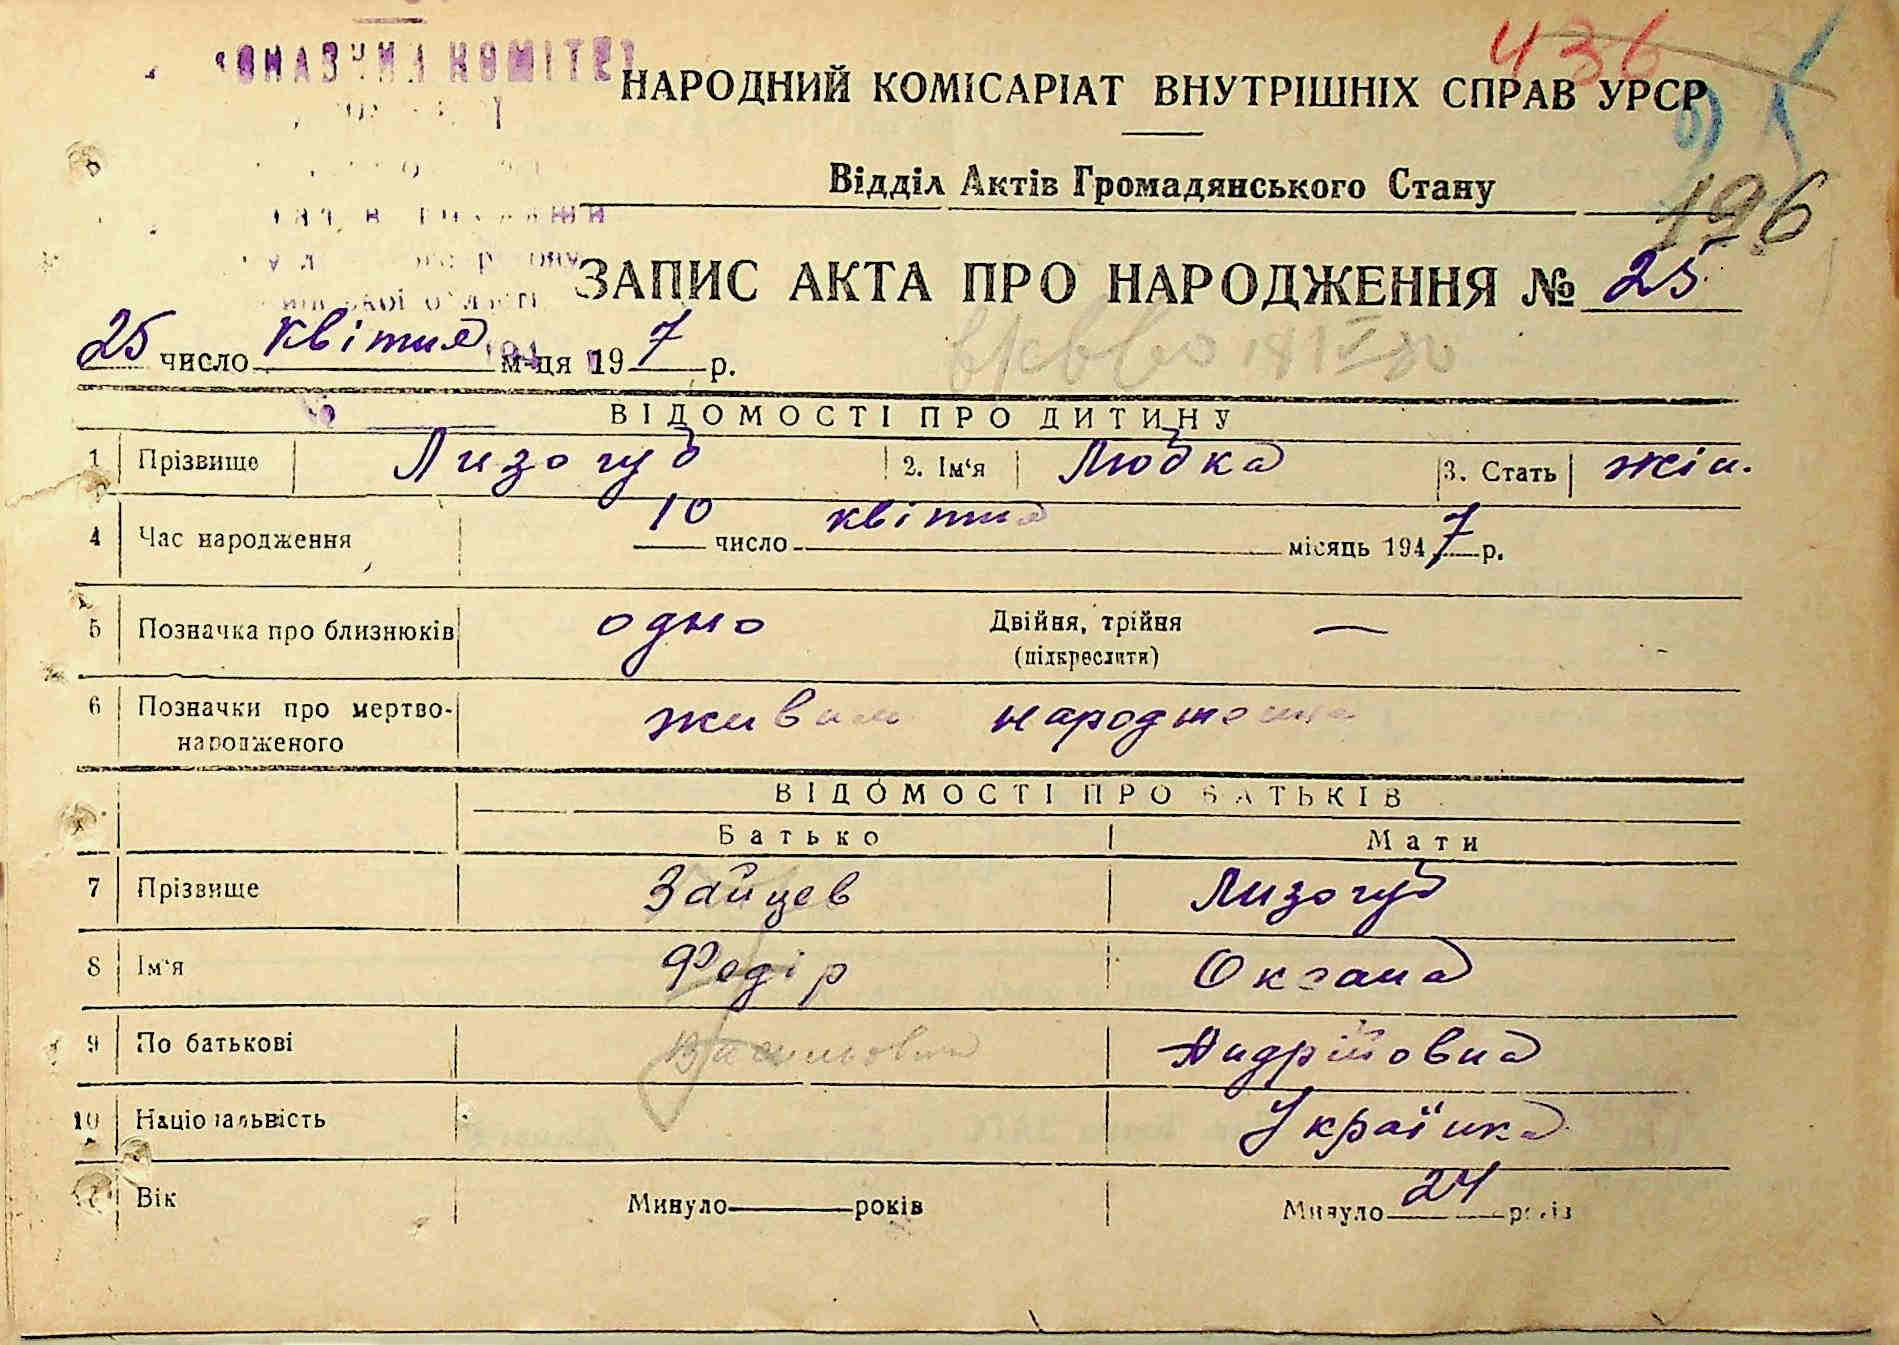 436
НАРОДНИЙ КОМІСАРІАТ ВНУТРІШНІХ СПРАВ УРСР
Відділ Актів Громадянського Стану
196
ЗАПИС АКТА ПРО НАРОДЖЕННЯ № 25
25 число квітня м-ця 1947 р.
ВІДОМОСТІ ПРО ДИТИНУ
1 Прізвище Лизогуб 2. Ім'я Любка 3. Стать жін.
4 Час народження 10 число квітня місяць 1947 р.
5 Позначка про близнюків одно Двійня, трійня —
(підкреслити)
6 Позначки про мертво-
народженого живим народжена
ВІДОМОСТІ ПРО БАТЬКІВ
Батько Мати
7 Прізвище Зайцев Лизогуб
8 Ім'я Федір Оксана
9 По батькові Васильович Андріївна
10 Національність Українка
Вік Минуло років Минуло 24 років